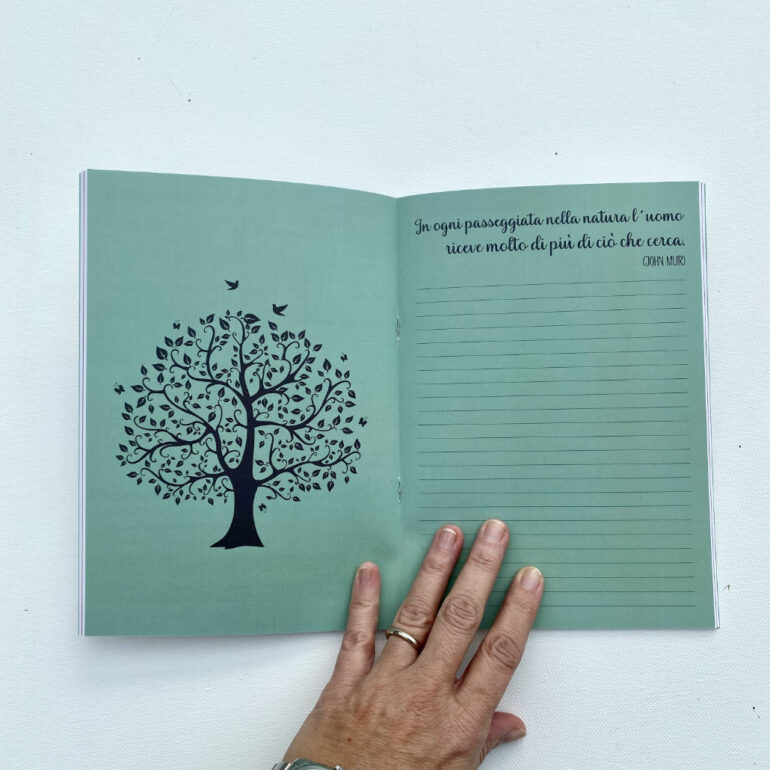 In ogni passeggiata nella natura l'uomo
riceve molto di più di ciò che cerca.
(JOHN MUIR)